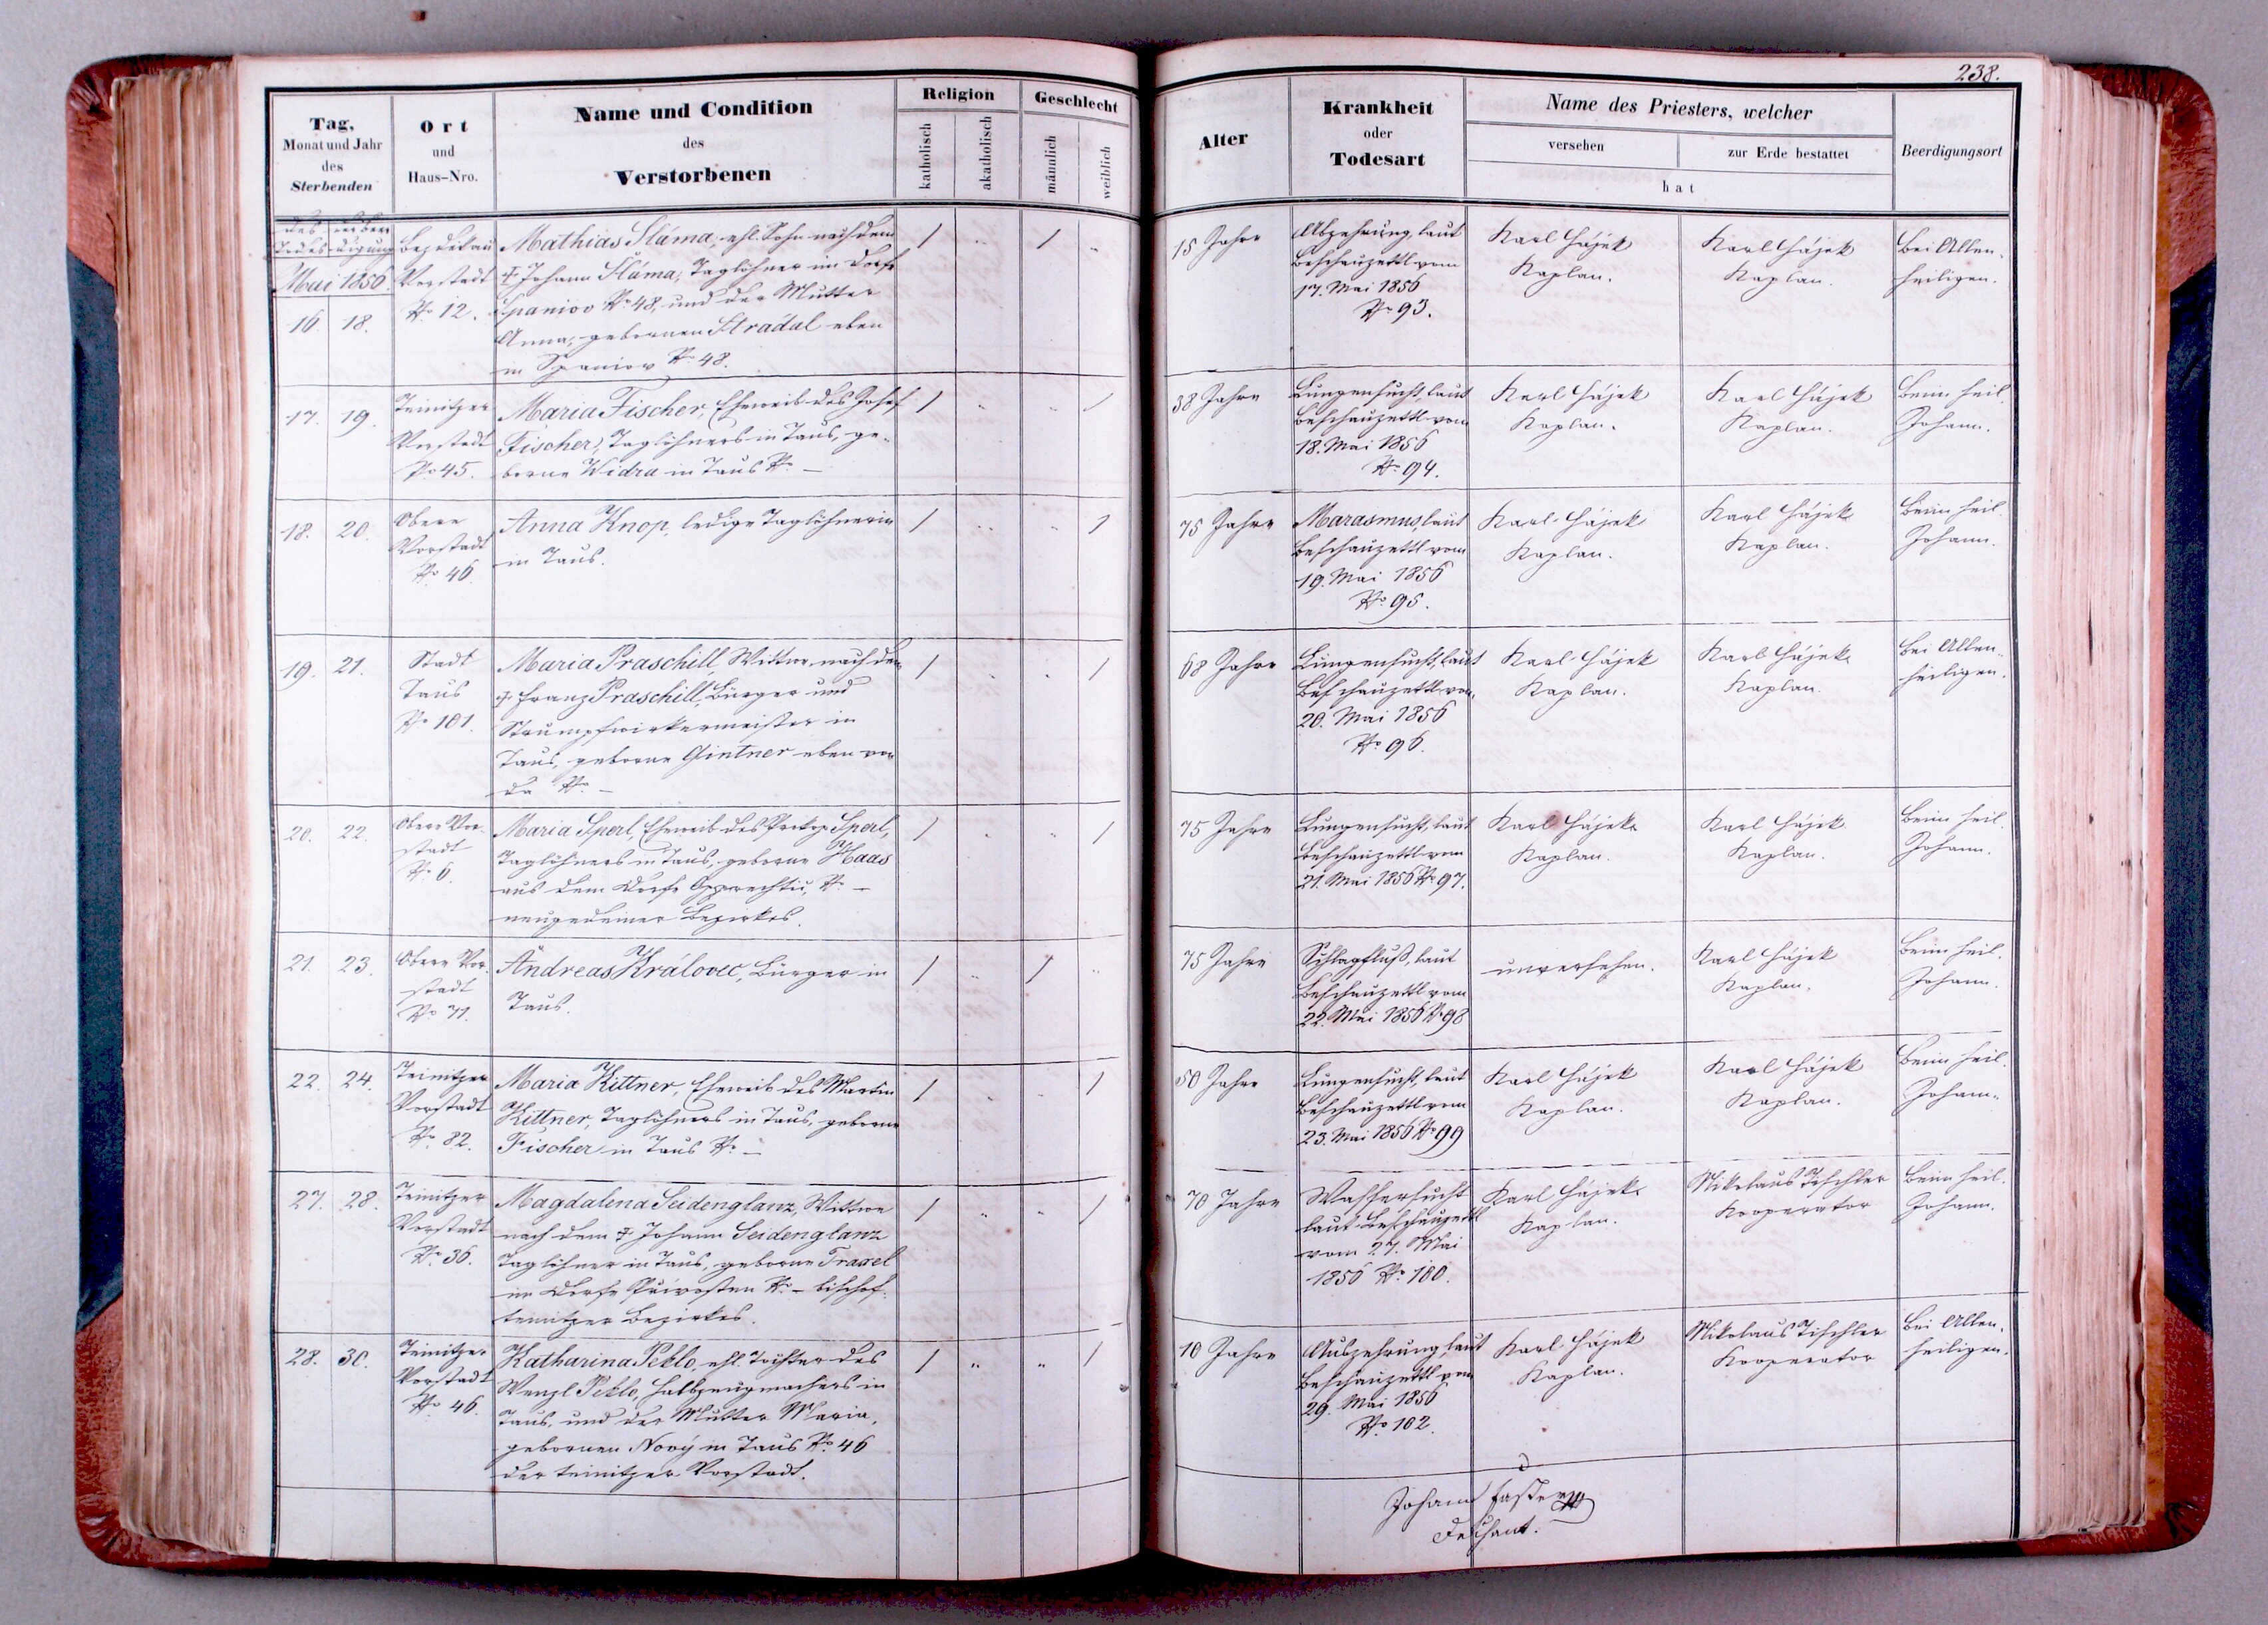 238.
Tag,
Monat und Jahr
des
Sterbenden
Ort
und
Haus-Nro.
Name und Condition
des
Verstorbenen
Religion
katholisch
akatholisch
Geschlecht
männlich
weiblich
Alter
Krankheit
oder
Todesart
Name des Priesters, welcher
versehen
zur Erde bestattet
hat
Beerdigungsort
des
Todes
der Beer-
digung
Mai 1856.
16. 18.
Bezdekau
Vorstadt
No 12.
Mathias Sláma, ehl. Sohn nach dem
† Johann Sláma, Taglöhner im Dorfe
Spaniov No 48, und der Mutter
Anna, gebornen Stradal eben
in Spaniov No 48.
1 " 1 "
15 Jahre
Abzehrung, laut
Beschauzettl vom
17. Mai 1856
No 93.
Karl Hájek
Kaplan.
Karl Hájek
Kaplan.
Bei Allen-
heiligen.
17. 19.
Teinitzer
Vorstadt
No 45.
Maria Fischer, Eheweib des Josef
Fischer, Taglöhners in Taus, ge-
borne Widra in Taus No —
1 " " 1
38 Jahre
Lungensucht, laut
Beschauzettl vom
18. Mai 1856
No 94.
Karl Hájek
Kaplan.
Karl Hájek
Kaplan.
Beim heil.
Johann.
18. 20.
Obere
Vorstadt
No 46.
Anna Knop, ledige Taglöhnerin
in Taus.
1 " " 1
75 Jahre
Marasmus, laut
Beschauzettl vom
19. Mai 1856
No 95.
Karl Hájek
Kaplan.
Karl Hájek
Kaplan.
Beim heil.
Johann.
19. 21.
Stadt
Taus
No 101.
Maria Praschill, Wittwe nach dem
† Franz Praschill, Bürger und
Strumpfwirkermeister in
Taus, geborne Gintner eben von
da No —
1 " " 1
68 Jahre
Lungensucht, laut
Beschauzettl vom
20. Mai 1856
No 96.
Karl Hájek
Kaplan.
Karl Hájek
Kaplan.
Bei Allen-
heiligen.
20. 22.
Obere Vor-
stadt
No 6.
Maria Sperl, Eheweib des Prokop Sperl,
Taglöhners in Taus, geborne Haas
aus dem Dorfe No —
neugedeiner Bezirkes.
1 " " 1
75 Jahre
Lungensucht, laut
Beschauzettl vom
21. Mai 1856 No 97.
Karl Hájek
Kaplan.
Karl Hájek
Kaplan.
Beim heil.
Johann.
21. 23.
Obere Vor-
stadt
No 77.
Andreas Královec, Bürger in
Taus.
1 " 1 "
75 Jahre
Schlagfluß, laut
Beschauzettl vom
22. Mai 1856 No 98
unversehen.
Karl Hájek
Kaplan.
Beim heil.
Johann.
22. 24.
Teinitzer
Vorstadt
No 82.
Maria Kittner, Eheweib des Martin
Kittner, Taglöhners in Taus, geborne
Fischer in Taus No —
1 " " 1
50 Jahre
Lungensucht, laut
Beschauzettl vom
23. Mai 1856 No 99
Karl Hájek
Kaplan.
Karl Hájek
Kaplan.
Beim heil.
Johann.
27. 28.
Teinitzer
Vorstadt
No 36.
Magdalena Seidenglanz, Wittwe
nach dem † Johann Seidenglanz
Taglöhner in Taus, geborne Traxel
im Dorfe No — bischof-
teinitzer Bezirkes.
1 " " 1
70 Jahre
Wassersucht
laut Beschauzettl
vom 27. Mai
1856 No 100.
Karl Hájek
Kaplan.
Nikolaus Tischler
Kooperator
Beim heil.
Johann.
28. 30.
Teinitzer
Vorstadt
No 46.
Katharina Peklo, ehl. Tochter des
Wenzl Peklo, Halbzeugmachers in
Taus, und der Mutter Maria,
gebornen Nový in Taus No 46
der teinitzer Vorstadt.
1 " " 1
10 Jahre
Auszehrung, laut
Beschauzettl vom
29. Mai 1856
No 102.
Karl Hájek
Kaplan.
Nikolaus Tischler
Kooperator
Bei Allen-
heiligen.
Johann Faster
Dechant.